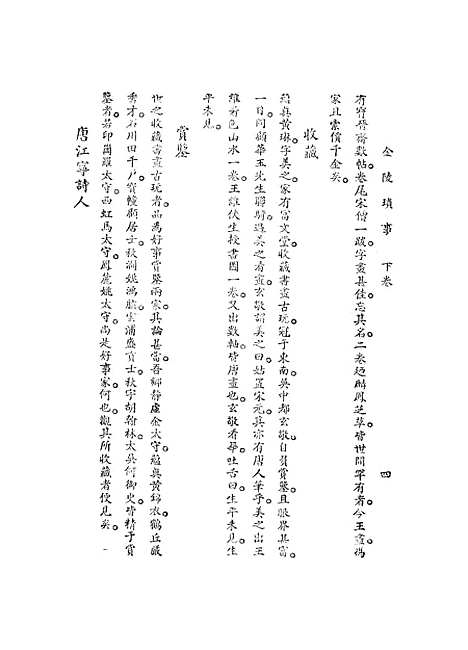 金陵瑣事　下卷　四
有寶晉齋數帖。卷尾宋僧一跋。字畫甚佳。忘其名。二卷廼麟鳳芝草。皆世間罕有者。今王畫撝
家。且索價千金矣。
收藏
蘊真黃琳。字美之。家有富文堂。收藏書畫古玩。冠于東南。吳中都玄敬自負賞鑒。且眼界甚富。
一日同顧華玉先生聯騎過美之看畫。玄敬謂美之曰。姑置宋元。其亦有唐人筆乎。美之出王
維著色山水一卷。王維伏生授書圖一卷。又出數軸。皆唐畫也。玄敬看畢。吐舌曰。生平未見。生
平未見。
賞鑒
世之收藏書畫古玩者。品為好事賞鑒兩家。其論甚當。吾鄉靜虛金太守。蘊真黃錦衣。鶴丘嚴
秀才。石川田千戶。寶幢顧居士。秋澗姚鴻臚。雲浦盛貢士。秋宇胡翰林。太吳何御史。皆精于賞
鑒者。若印岡羅太守。西虹馬太守。鳳麓姚太守。尚是好事家。何也。觀其所收藏者便見矣。
唐江寧詩人